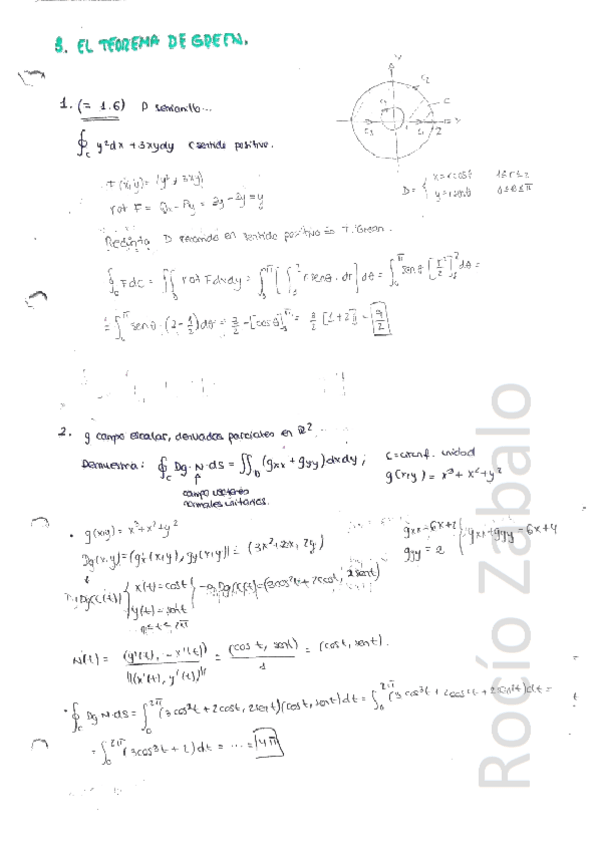 3. EL TEOREMA DE GREEN.
1. (= 1.6) D semianillo...
∮c y²dx + 3xydy C sentido positivo.
rot F = Qx - Py = 3y - 2y = y
D = { x = rcosθ 1≤r≤2
y = rsenθ 0≤θ≤π
D recorrido en sentido positivo T. Green.
∮c Fdc = ∬D rot Fdxdy =
2. g campo escalar, derivadas parciales en ℝ²
Demuestra: ∮c Dg·N·ds = ∬D (gxx + gyy)dxdy; C = circunf. unidad
g(x,y) = x³ + x² + y²
campo vectores
normales unitarios.
• g(x,y) = x³ + x² + y²
Dg(x,y) = (gx(x,y), gy(x,y)) = (3x² + 2x, 2y)
gxx = 6x + 2
gyy = 2
gxx + gyy = 6x + 4
x(t) = cost
y(t) = sent
0 ≤ t ≤ 2π
N(t) = (y'(t), -x'(t)) / ||(x'(t), y'(t))|| = (cos t, sent) / 1 = (cos t, sent).
• ∮c Dg N·ds = ∫₀^2π (3cos²t + 2cost, 2sent)(cost, sent)dt = ∫₀^2π (3cos³t + 2cos²t + 2sen²t)dt =
= ∫₀^2π (3cos³t + 2)dt = ... = 4π
Rocío Zabalo